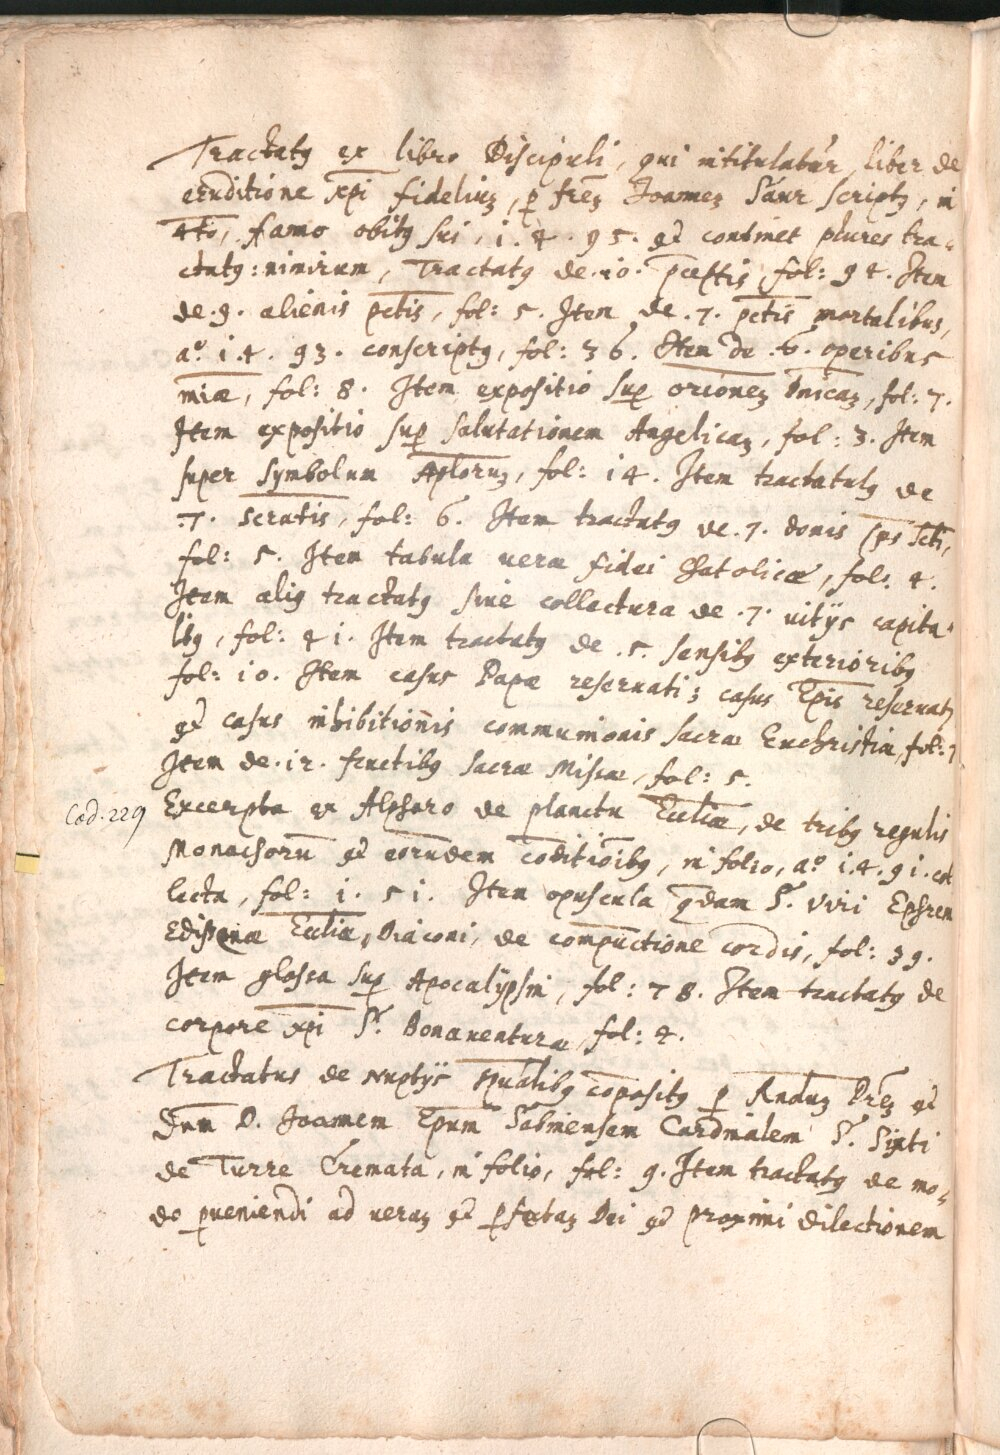 Tractatꝰ ex libro Discipuli, qui intitulatur liber de
eruditione xp̄i fidelium, ꝑ frēm Joannem Saur scriptꝰ, in
4to, famo obitꝰ sui, i. 4. 95. qui continet plures tra-
ctatꝰ: nimirum, Tractatꝰ de .10. p̄ceptis, fol: 94. Item
de .9. alienis pctis, fol: 5. Item de .7. pctis mortalibus,
a.º i.4.93. conscriptꝰ, fol: 36. Item de .6. operibus
miæ, fol: 8. Item expositio suꝑ orionem Dnicam, fol: 7.
Item expositio suꝑ salutationem Angelicam, fol: 3. Item
super symbolum Aplorum, fol: i4. Item tractatulꝰ de
.7. scratis, fol: 6. Item tractatꝰ de .7. donis sps scti,
fol: 5. Item tabula veræ fidei Chatolicæ, fol: 4.
Item aliꝰ tractatꝰ sive collectura de .7. vitijs capita-
libꝰ, fol: 4i. Item tractatꝰ de .5. sensibꝰ exterioribꝰ
fol: i0. Item casus Papæ reservati; casus Epis reservati
et casus inhibitionis communionis sacræ Euchristiæ, fol: 7
Item de .i2. fructibꝰ sacræ Missæ, fol: 5.
Cod. 229 Excerpta ex Alpharo de planctu Eccliæ, de tribꝰ regulis
Monachorū et eorundem cōditiōibꝰ, in folio, a.º i.4.9i. col
lecta, fol: i. 5i. Item opuscula qdam S. Viri Ephrem
Edissenæ Eccliæ, Diaconi, de compunctione cordis, fol: 39.
Item glossa suꝑ Apocalypsin, fol: 78. Item tractatꝰ de
corpore xpi S. Bonaventuræ fol: 4.
Tractatus de nuptijs spualibꝰ cōpositꝰ ꝑ Rndum Prem et
Dnm D. Joannem Epum Sabinensem Cardinalem S. Sixti
de Turre Cremata, in folio, fol: 9. Item tractatꝰ de mo-
do ꝑveniendi ad veram et ꝑfectam Dei et proximi dilectionem